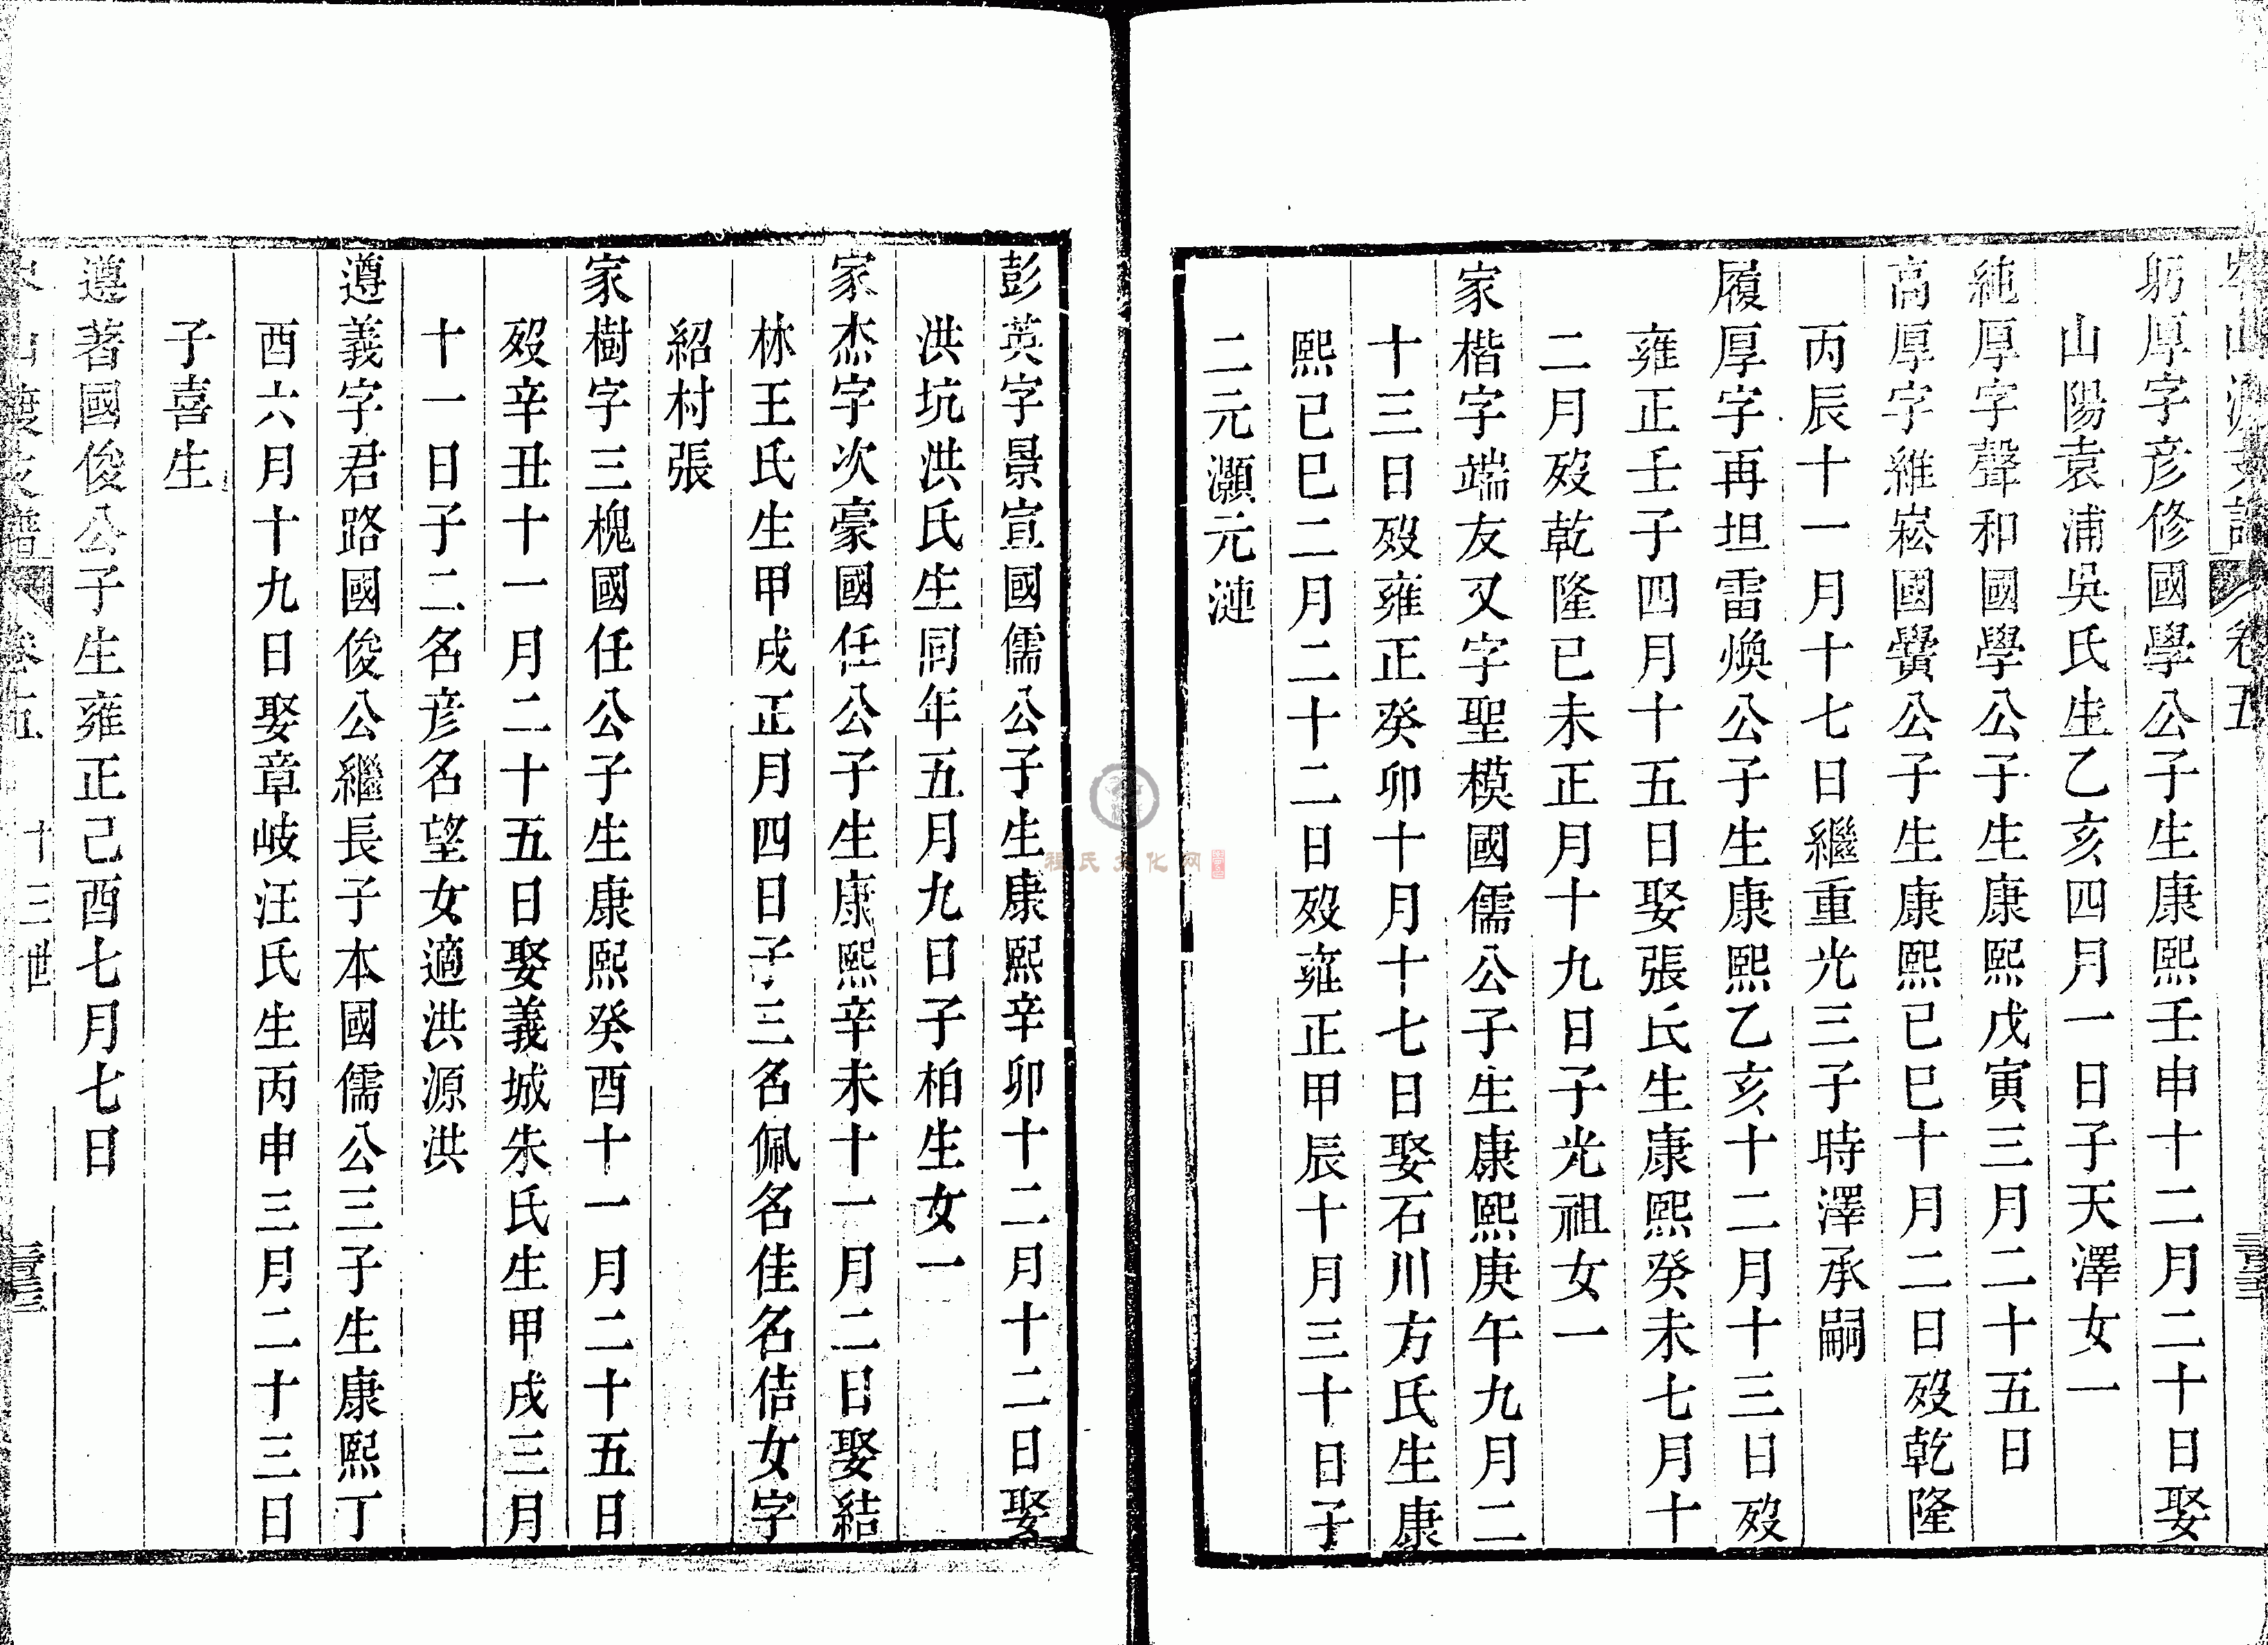 躬厚字彦修國學公子生康熙壬申十二月二十日娶
山陽袁浦吳氏生乙亥四月一日子天澤女一
純厚字聲和國學公子生康熙戊寅三月二十五日
高厚字維崧國黌公子生康熙已巳十月二日歿乾隆
丙辰十一月十七日繼重光三子時澤承嗣
履厚字再坦雷煥公子生康熙乙亥十二月十三日歿
雍正壬子四月十五日娶張氏生康熙癸未七月十
二月歿乾隆已未正月十九日子光祖女一
家楷字端友又字聖模國儒公子生康熙庚午九月二
十三日歿雍正癸卯十月十七日娶石川方氏生康
熙已巳二月二十二日歿雍正甲辰十月三十日子
二元灝元漣
彭英字景宣國儒公子生康熙辛卯十二月十二日娶
洪坑洪氏生同年五月九日子柏生女一
家杰字次豪國任公子生康熙辛未十一月二日娶結
林王氏生甲戌正月四日子三名佩名佳名佶女字
紹村張
家樹字三槐國任公子生康熙癸酉十一月二十五日
歿辛丑十一月二十五日娶義城朱氏生甲戌三月
十一日子二名彦名望女適洪源洪
遵義字君路國俊公繼長子本國儒公三子生康熙丁
酉六月十九日娶章岐汪氏生丙申三月二十三日
子喜生
遵著國俊公子生雍正己酉七月七日
卷五 十三世
程氏文化网